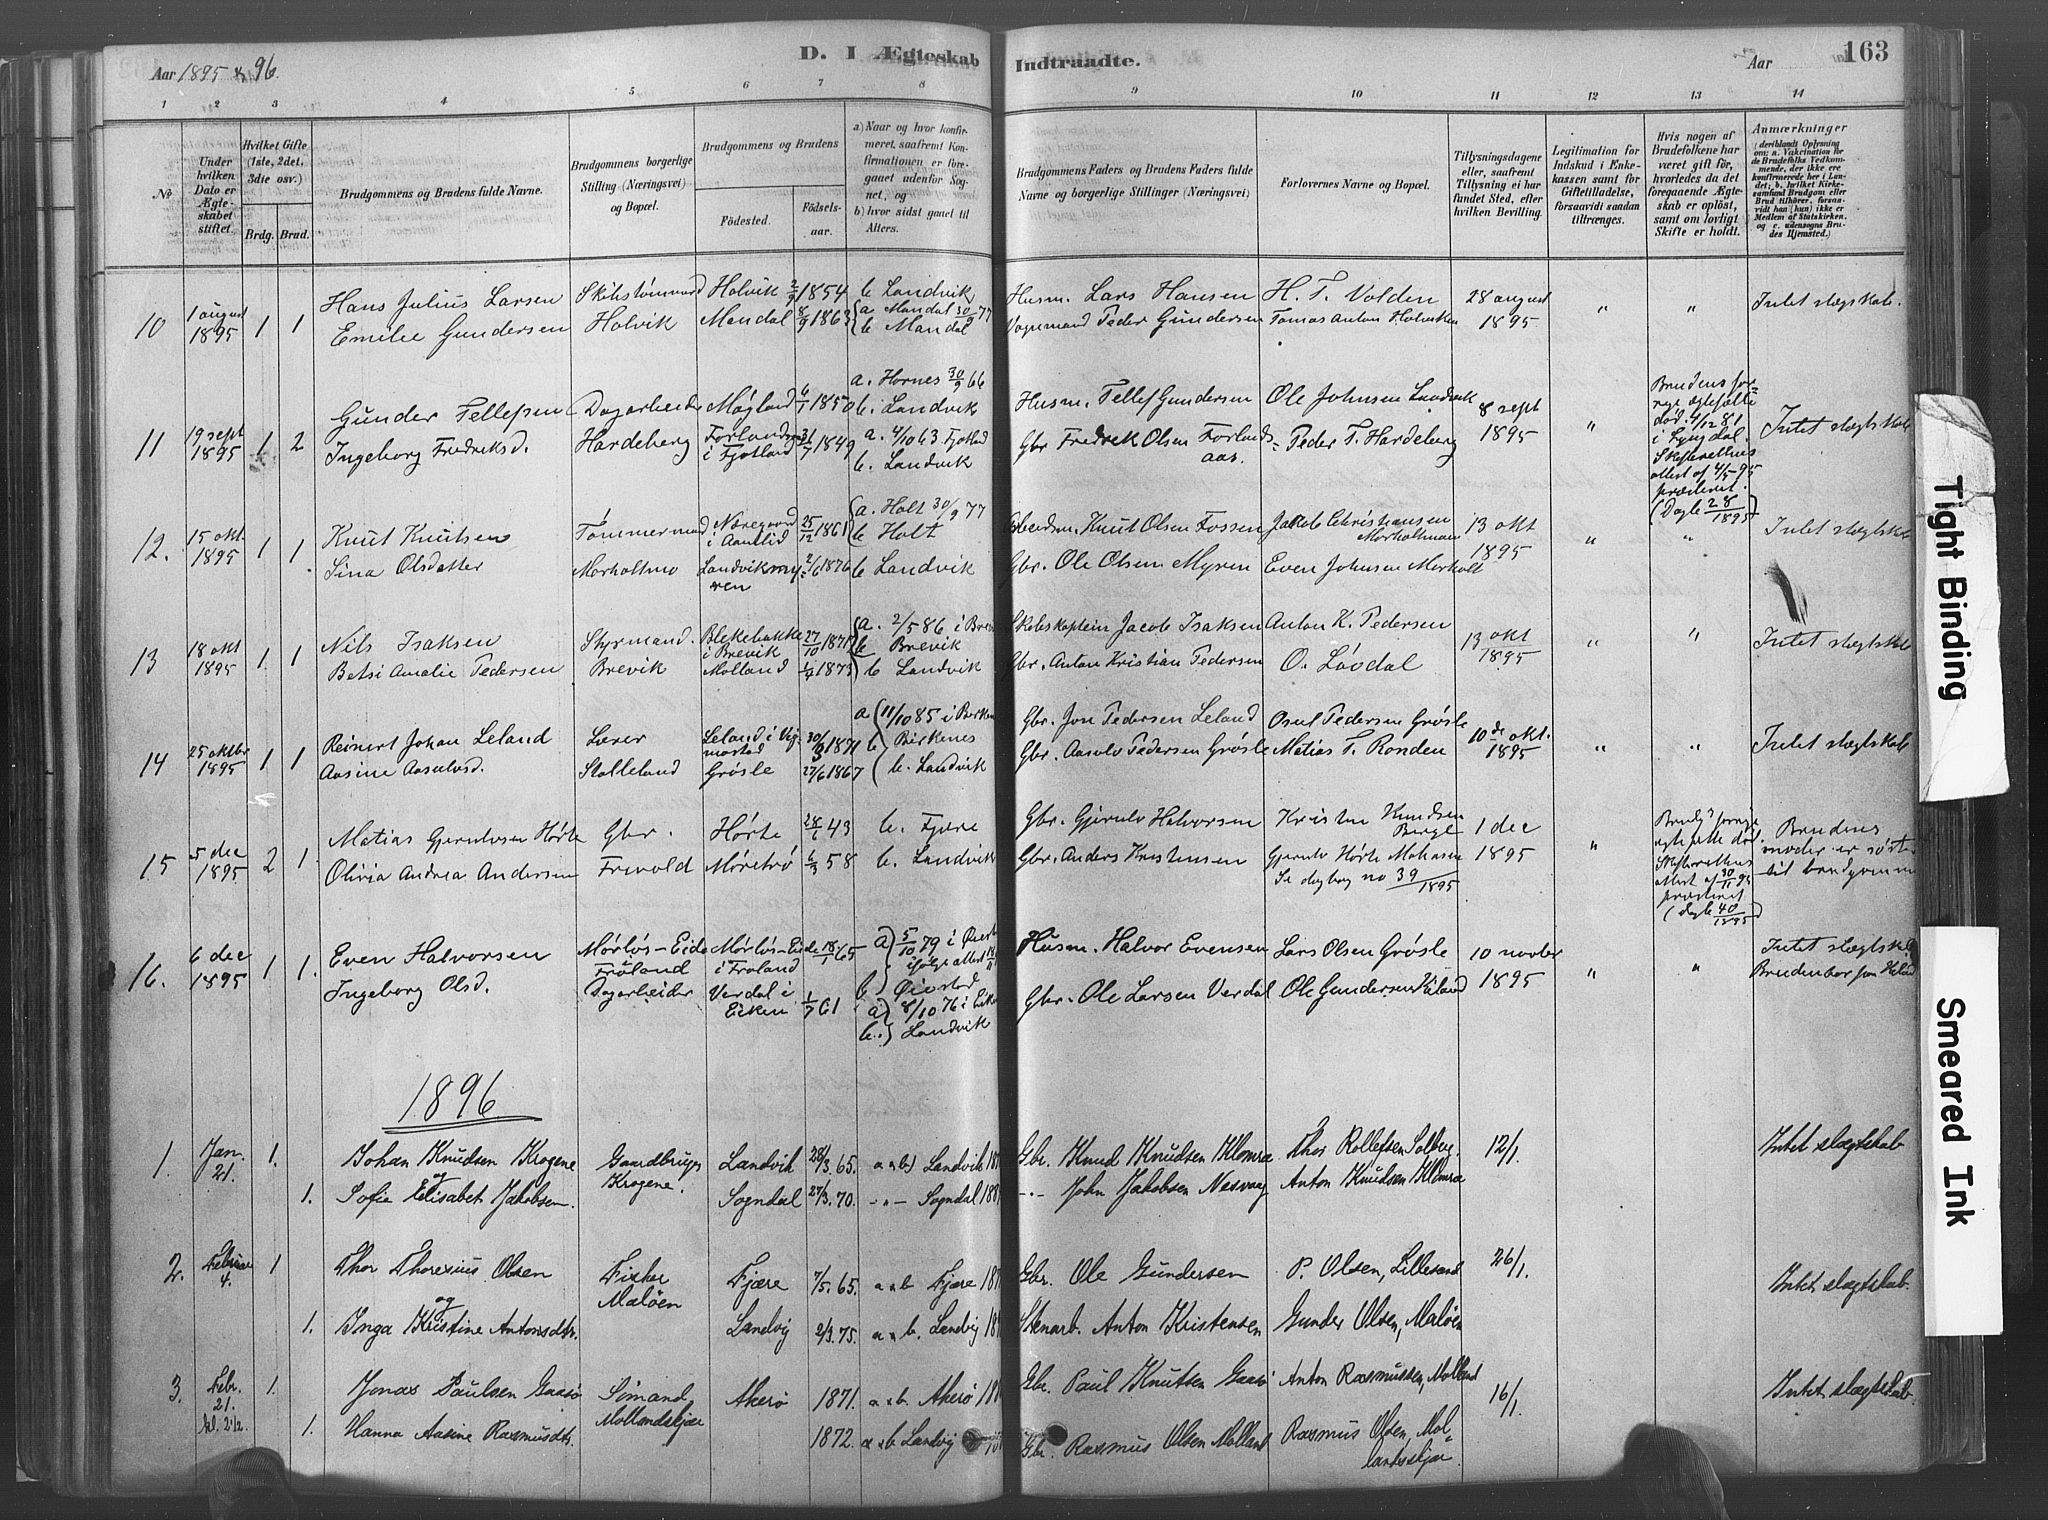 Aar 1895 & 96.
D. I Ægteskab Indtraadte.
Aar
163
1 2 3 4 5 6 7 8 9 10 11 12 13 14
№
Under hvilken Dato er Ægteskabet stiftet.
Hvilket Gifte (1ste, 2det, 3die osv.)
Brdg. Brud.
Brudgommens og Brudens fulde Navne.
Brudgommens borgerlige Stilling (Næringsvei) og Bopæl.
Brudgommens og Brudens
Fødested.
Fødselsaar.
a) Naar og hvor konfirmeret, saafremt Konfirmationen er foregaaet udenfor Sognet, og
b) hvor sidst gaaet til Alters.
Brudgommens Faders og Brudens Faders fulde Navne og borgerlige Stillinger (Næringsvei)
Forlovernes Navne og Bopæl.
Tillysningsdagene eller, saafremt Tillysning ei har fundet Sted, efter hvilken Bevilling.
Legitimation for Indskud i Enkekassen samt for Giftetilladelse, forsaavidt saadan tiltrænges.
Hvis nogen af Brudefolkene har været gift før, hvorledes da det foregaaende Ægteskab er opløst, samt om lovligt Skifte er holdt.
Anmærkninger
(deriblandt Oplysning om: a. Vakcination for de Brudefolks Vedkommende, der ikke ere konfirmerede her i Landet; b. hvilket Kirkesamfund Brudgom eller Brud tilhører, forsaavidt han (hun) ikke er Medlem af Statskirken, og c. udensogns Brudes Hjemsted.)
10 1 august 1895 1 1
Hans Julius Larsen
Emilie Gundersen
Skibstømmermand Holvik
Holvik 2/9 1854
Mandal 8/9 1863
b Landvik
a Mandal 30/9 77
b Mandal
Husm. Lars Hansen
Vognmand Peder Gundersen
H. T. Volden
Tomas Anton Holviken
28 august 1895
" "
Intet slægtskab.
11 19 sept 1895 1 2
Gunder Tellefsen
Ingeborg Fredriksd.
Dagarbeider Hardeberg
Møgland 6/1 1850
Forlandsaas i Fjotland 31/7 1849
a. Hornes 30/9 66
b. Landvik
a. 4/10 63 Fjotland
b. Landvik
Husm. Tellef Gundersen
Gbr Fredrek Olsen Forlandsaas.
Ole Johnsen Landvik
Peder T. Hardeberg
8 sept 1895
"
Brudens forrige ægtefælle død 4/12 81 i Lyngdal. Skifterettens attest af 4/5 95 præsteret. (Dagb 28/1895)
Intet slægtskab
12. 15 okt 1895 1 1
Knut Knutsen
Sina Olsdatter
Tømmermand Morholtmo
Næregaard i Aamlid 25/12 1861
Landviksmyren 2/6 1876
a. Holt 30/9 77
b Holt
b Landvik
Arbeidsm. Knut Olsen Fossen
Gbr. Ole Olsen Myren
Jakob Christiansen Morholtmoen
Even Johnsen Morholt
13 okt 1895
" "
Intet slægtskab
13 18 okt 1895 1 1
Nils Isaksen
Betsi Amalie Pedersen
Styrmand. Brevik
Blekebakke i Brevik 27/10 1871
Molland 1/9 1873
a. 2/5 86 i Brevik
b Brevik
b Landvik
Skibskaptein Jacob Isaksen
Gbr. Anton Kristian Pedersen
Anton K. Pedersen
O. Løvdal
13 okt 1895
" "
Intet slægtskab
14 25 oktbr 1895 1 1
Reinert Johan Leland
Aasine Aasulvsd.
Lærer Stalleland
Leland i Vigmostad 1871
Grøsle 27/6 1867
a 11/10 85 i Birkenes
b Birkenes
b. Landvik
Gbr. Jon Pedersen Leland
Gbr. Aasulv Pedersen Grøsle
Osul Pedersen Grøsle
Matias T. Ronden
10de okt. 1895
" "
Intet slægtskab
15 5 dec 1895 2 1
Matias Gjerulvsen Hørte
Olivia Andrea Andersen
Gbr. Frivold
Hørte 28/1 43
Møretrø 6/3 58
b. Fjære
b. Landvik
Gbr. Gjerulv Halvorsen
Gbr. Anders Kristensen
Kristen Knudsen Berge
Gjerulv Hørte Mathisen
Se dagbog no 39/1895
1 dec 1895
"
Brudg's forrige ægtefælle død Skifterettens attest af 30/11 95 præsteret (dagb 40/1895)
Brudens moder er søster til brudgommen
16. 6 dec 1895 1 1.
Even Halvorsen
Ingeborg Olsd.
Mørløs-Eide Froland Dagarbeider
Mørløs-Eide i Froland 18/1 65
Verdal i Eiken 1/7 61
a) 5/10 79 i Øiestad ifølge attest
b) Øiestad
a) 8/10 76 i Eiken
b.) Landvik
Husm. Halvor Evensen
Gbr. Ole Larsen Verdal
Lars Olsen Grøsle
Ole Gundersen
10 novber 1895
" "
Intet slægtskab
1896
1 Jan. 21. 1.
Johan Knudsen Krogene
og
1. Sofie Elisabet Jakobsen.
Gaardbruger Krogene.
Landvik 28/3. 65.
Sogndal 27/3. 70.
a & b) Landvik
– " – Sogndal
Gbr. Knud Knudsen Klomra
–"– John Jakobsen Nesvaag
Thos Rollefsen Solberg.
Anton Knudsen Klomra
12/1.
Intet slægtskab
2. Februar 4. 1
Thor Thorexius Olsen
og
1. Inga Kristine Antonsdtr.
Fisker Maløen
Fjære 7/5. 65.
Landvig 2/3. 75.
a & b Fjære
a & b. Landvig
Gbr. Ole Gundersen
Stenarb. Anton Kristensen
P. Olsen, Lillesand
Gunder Olsen, Maløen
26/1.
Intet slægtskab.
3. Febr. 21. kl. 2 1/2. 1.
Jonas Paulsen Gaasø
1. Hanna Aasine Rasmusdtr.
Sømand Mollandskjær
Akerø 1871.
1872.
a & b. Akerø
a & b Landvig
Gbr. Paul Knutsen Gaasø
Gbr. Rasmus Olsen Molland
Anton Rasmussen, Molland
Rasmus Olsen, Mollandsskjær.
16/1.
Intet slægtskab.
Tight Binding
Smeared Ink